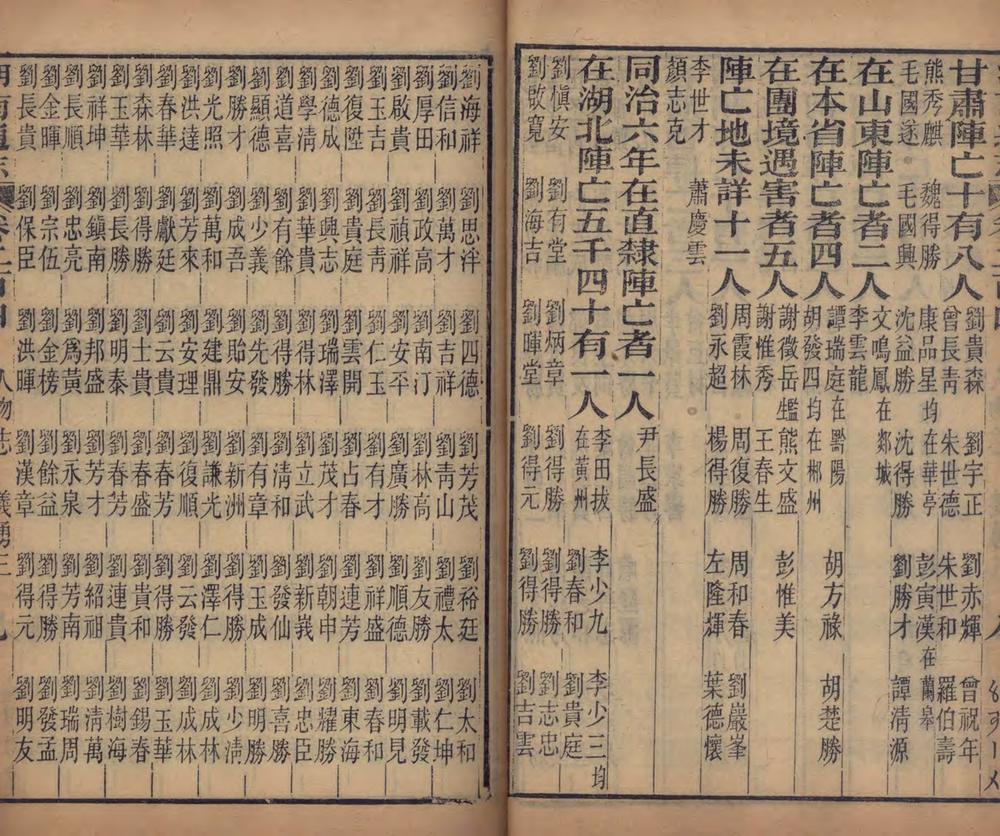 甘肅陣亡十有八人 劉貴森 劉宇正 劉赤輝 曾祝年
曾長青 朱世德 朱世和 羅伯壽
熊秀麒 魏得勝 康品星均在華亭 彭寅漢在蘭皋
毛國遂 毛國興 沈益勝 沈得勝 劉勝才 譚清源
在山東陣亡者二人 文鳴鳳在郯城
李雲龍
在本省陣亡者四人 譚瑞庭在黔陽 胡方祿 胡楚勝
胡發四均在郴州
在團境遇害者五人 謝徵岳監 熊文盛 彭惟美
謝惟秀 王春生
陣亡地未詳十一人 周霞林 周復勝 周和春 劉巖峯
劉永超 楊得勝 左隆煇 葉德懷
李世才 蕭慶雲
顏志克
同治六年在直隸陣亡者一人 尹長盛
在湖北陣亡五千四十有一人 李田拔 李少九 李少三均
在黃州 劉春和 劉貴庭
劉愼安 劉有堂 劉炳章 劉得勝 劉得勝 劉志忠
劉敢寬 劉海吉 劉暉堂 劉得元 劉得勝 劉吉雲
劉海祥 劉思泮 劉四德 劉芳茂 劉裕廷 劉太和
劉信和 劉萬才 劉吉祥 劉青山 劉禮太 劉仁坤
劉厚田 劉政高 劉南汀 劉林高 劉友勝 劉載發
劉啟貴 劉禎祥 劉安平 劉廣勝 劉順德 劉明見
劉玉吉 劉長靑 劉仁玉 劉有才 劉祥盛 劉春和
劉復陞 劉貴庭 劉雲開 劉占春 劉連芳 劉東海
劉德成 劉興志 劉瑞澤 劉茂才 劉朝申 劉耀勝
劉學清 劉華貴 劉得勝 劉立武 劉新義 劉忠臣
劉道喜 劉有餘 劉得林 劉清和 劉發仙 劉喜勝
劉顯德 劉少義 劉先發 劉有章 劉玉成 劉明勝
劉勝才 劉成吾 劉貽安 劉新洲 劉得勝 劉少淸
劉光照 劉萬和 劉建鼎 劉謙光 劉澤仁 劉成林
劉洪達 劉芳來 劉安理 劉復順 劉云發 劉成林
劉春華 劉獻廷 劉云貴 劉春芳 劉得勝 劉玉華
劉森林 劉得勝 劉士貴 劉春盛 劉貴和 劉錫春
劉玉華 劉長勝 劉明泰 劉春芳 劉連貴 劉樹海
劉祥坤 劉鎭南 劉邦盛 劉芳才 劉紹祖 劉淸萬
劉長順 劉忠亮 劉爲黃 劉永泉 劉芳南 劉瑞周
劉金暉 劉宗伍 劉金榜 劉餘益 劉得勝 劉發孟
劉長貴 劉保臣 劉洪暉 劉漢章 劉得元 劉明友
人物志 義勇三